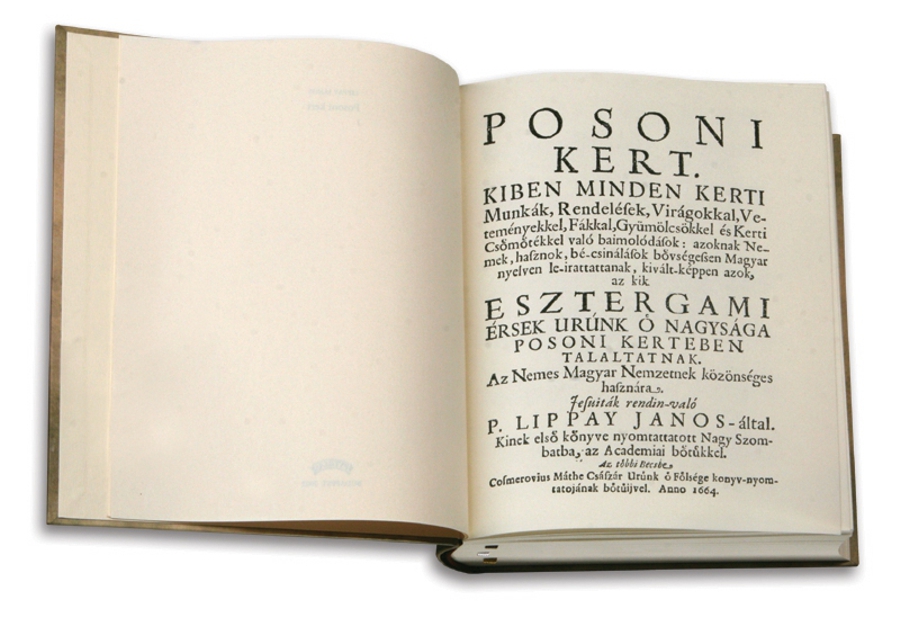 POSONI
KERT.
KIBEN MINDEN KERTI
Munkák, Rendeléſek, Virágokkal, Ve-
teményekkel, Fákkal, Gyümölcsökkel és Kerti
Csömötékkel való baimolódáſok: azoknak Ne-
mek, haſznok, bé-csinálások bővségeſſen Magyar
nyelven le-irattattanak, kivált-képpen azok,
az kik
ESZTERGAMI
ÉRSEK URUNK Ő NAGYSÁGA
POSONI KERTEBEN
TALALTATNAK.
Az Nemes Magyar Nemzetnek közönséges
haſznára.
Jeſuiták rendin-való
P. LIPPAY JANOS-által.
Kinek első kőnyve nyomtattatott Nagy Szom-
batba, az Academiai bőtűkkel.
Az többi Becsbe,
Coſmerovius Máthe Császár Urunk ő Fölsége konyv-nyom-
tatojának bőtűijvel. Anno 1664.